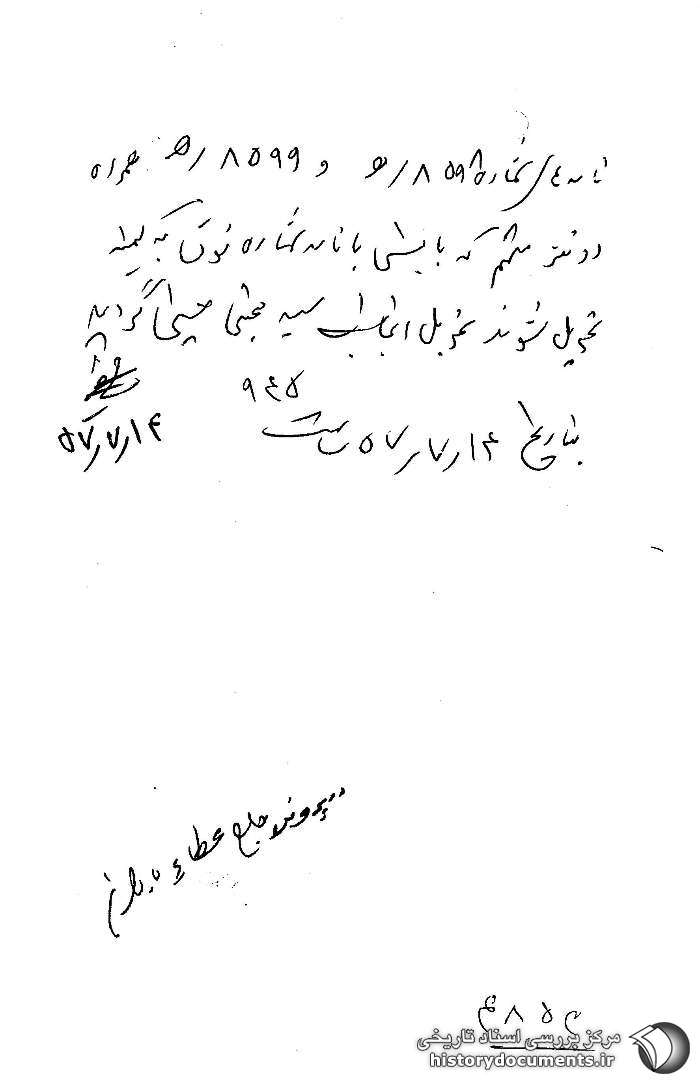 نامه های شماره ۸۵۹۸/ه و ۸۵۹۹/ه همراه
دو نفر متهم که بایستی با نامه شماره فوق به کمیته
تحویل شوند تحویل اینجانب سید مجتبی گردید
۹۴۵
بتاریخ ۱۴ر۷ر۵۷ ساعت
۱۴ر۷ر۵۷
عطا
۴۸۵۴
مرکز بررسی اسناد تاریخی
historydocuments.ir